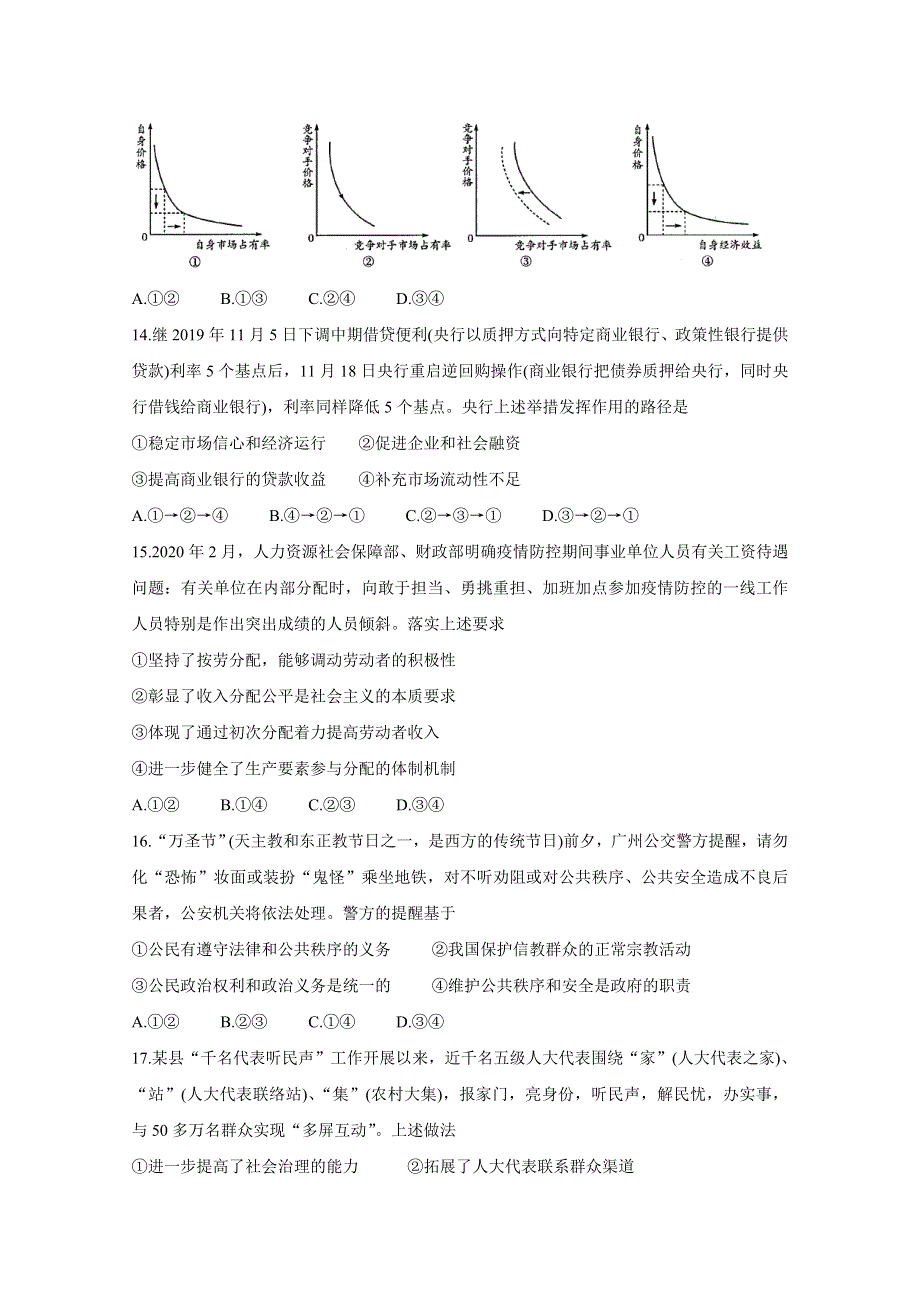 自身价格
0
自身市场占有率
①
竞争对手价格
0
竞争对手市场占有率
②
竞争对手价格
0
竞争对手市场占有率
③
自身价格
0
自身经济效益
④
A.①② B.①③ C.②④ D.③④
14.继 2019 年 11 月 5 日下调中期借贷便利(央行以质押方式向特定商业银行、政策性银行提供
贷款)利率 5 个基点后，11 月 18 日央行重启逆回购操作(商业银行把债券质押给央行，同时央
行借钱给商业银行)，利率同样降低 5 个基点。央行上述举措发挥作用的路径是
①稳定市场信心和经济运行 ②促进企业和社会融资
③提高商业银行的贷款收益 ④补充市场流动性不足
A.①→②→④ B.④→②→① C.②→③→① D.③→②→①
15.2020 年 2 月，人力资源社会保障部、财政部明确疫情防控期间事业单位人员有关工资待遇
问题：有关单位在内部分配时，向敢于担当、勇挑重担、加班加点参加疫情防控的一线工作
人员特别是作出突出成绩的人员倾斜。落实上述要求
①坚持了按劳分配，能够调动劳动者的积极性
②彰显了收入分配公平是社会主义的本质要求
③体现了通过初次分配着力提高劳动者收入
④进一步健全了生产要素参与分配的体制机制
A.①② B.①④ C.②③ D.③④
16.“万圣节”(天主教和东正教节日之一，是西方的传统节日)前夕，广州公交警方提醒，请勿
化“恐怖”妆面或装扮“鬼怪”乘坐地铁，对不听劝阻或对公共秩序、公共安全造成不良后
果者，公安机关将依法处理。警方的提醒基于
①公民有遵守法律和公共秩序的义务 ②我国保护信教群众的正常宗教活动
③公民政治权利和政治义务是统一的 ④维护公共秩序和安全是政府的职责
A.①② B.②③ C.①④ D.③④
17.某县“千名代表听民声”工作开展以来，近千名五级人大代表围绕“家”(人大代表之家)、
“站”(人大代表联络站)、“集”(农村大集)，报家门，亮身份，听民声，解民忧，办实事，
与 50 多万名群众实现“多屏互动”。上述做法
①进一步提高了社会治理的能力 ②拓展了人大代表联系群众渠道